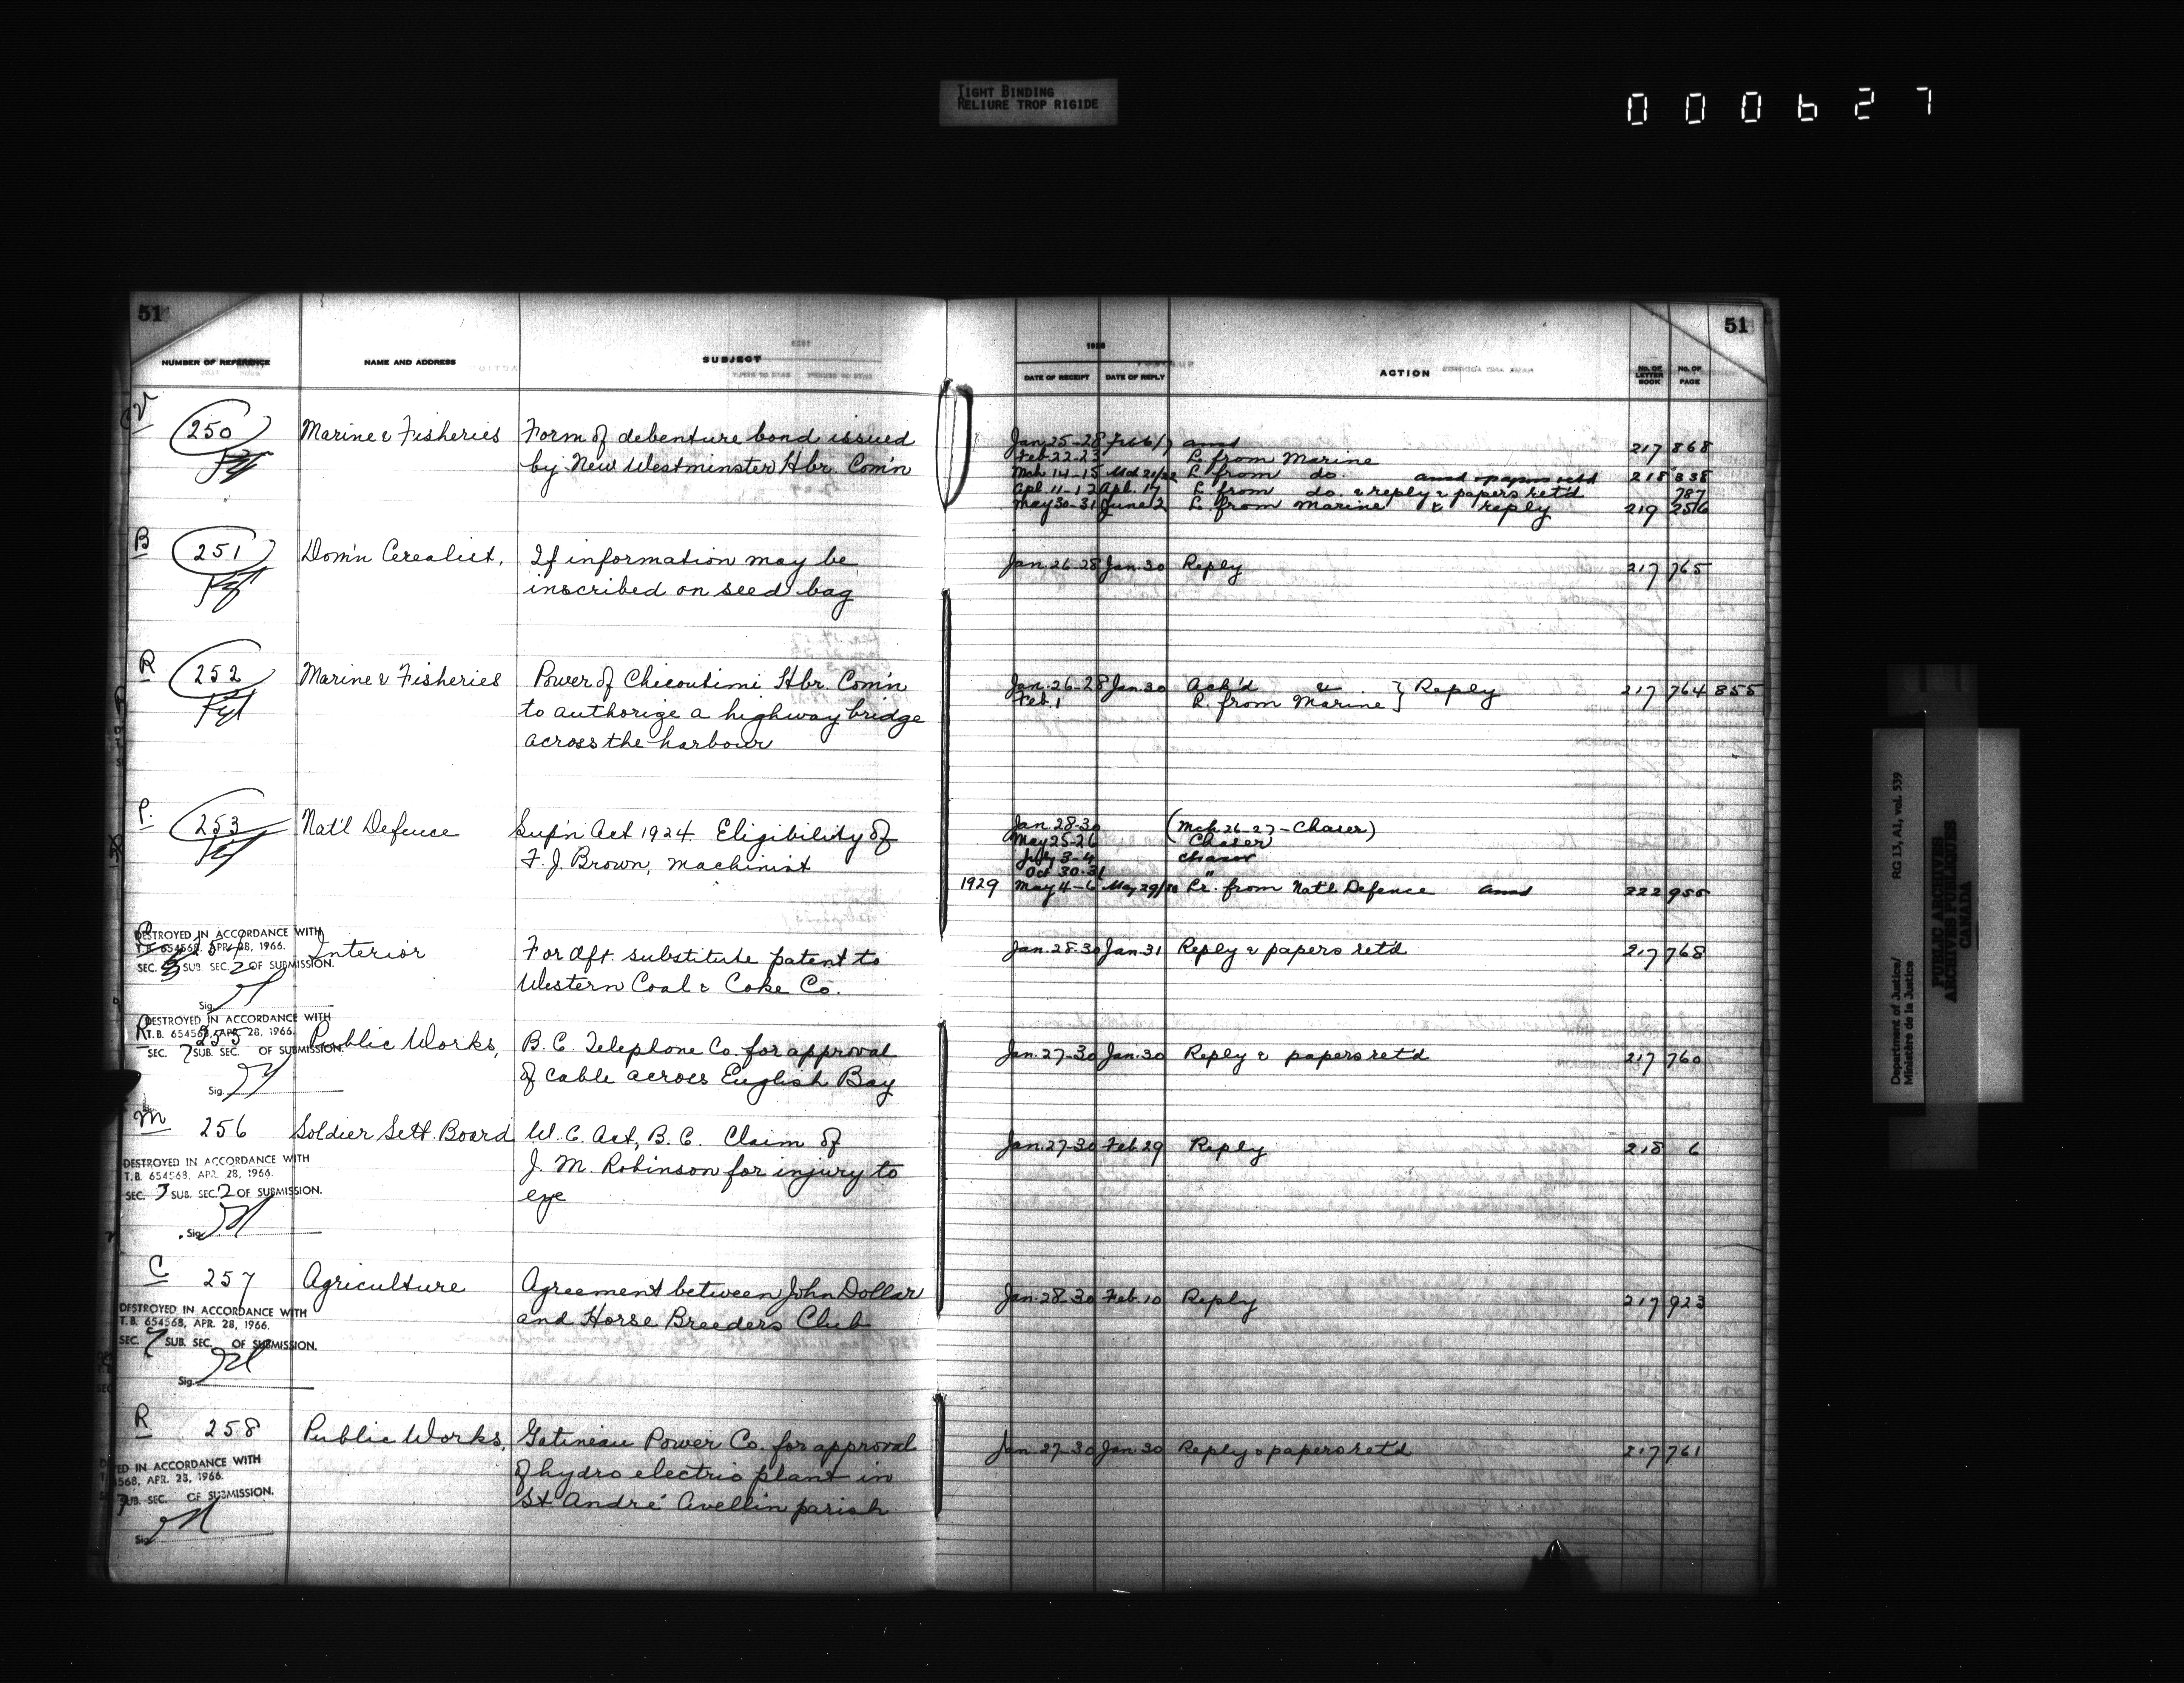 TIGHT BINDING
RELIURE TROP RIGIDE
000627
51
51
NUMBER OF REFERENCE NAME AND ADDRESS SUBJECT
1928
DATE OF RECEIPT DATE OF REPLY ACTION No. OF LETTER BOOK No. OF PAGE
250 Marine & Fisheries Form of debenture bond issued
by New Westminster Hbr. Com'n
Jan. 25-28 Feb 6/7 ansd 217 868
Feb. 22-23 L. from Marine
Mch 14-15 Mch 21/22 L. from do. ansd & papers retd 218 338
Apl. 11-12 Apl. 17 L. from do. & reply & papers ret'd 787
May 30-31 June 2 L. from Marine & reply 219 256
B 251 Dom'n Cerealist, If information may be
inscribed on seed bag
Jan. 26-28 Jan. 30 Reply 217 765
R 252 Marine & Fisheries Power of Chicoutimi Hbr. Com'n
to authorize a highway bridge
across the harbour
Jan. 26-28 Jan. 30 Ack'd & } Reply 217 764 855
Feb. 1 L. from Marine
P. 253 Nat'l Defence Sup'n Act 1924. Eligibility of
F. J. Brown, machinist
Jan. 28-30 (Mch 26-27-Chaser)
May 25-26 Chaser
July 3-4 chaser
Oct 30-31 "
1929 May 4-6 May 29/30 Lr. from Nat'l Defence ansd 222 955
254 Interior For dft. substitute patent to
Western Coal & Coke Co.
Jan. 28-30 Jan. 31 Reply & papers ret'd 217 768
DESTROYED IN ACCORDANCE WITH
T.B. 654568, APR. 28, 1966.
SEC. 3 SUB. SEC. 2 OF SUBMISSION.
Sig.
R 255 Public Works, B. C. Telephone Co. for approval
of cable across English Bay
Jan. 27-30 Jan. 30 Reply & papers ret'd 217 760
DESTROYED IN ACCORDANCE WITH
T.B. 654568, APR. 28, 1966.
SEC. 7 SUB. SEC. OF SUBMISSION.
Sig.
M 256 Soldier Sett. Board W. C. Act, B. C. Claim of
J. M. Robinson for injury to
eye
Jan. 27-30 Feb. 29 Reply 218 6
DESTROYED IN ACCORDANCE WITH
T.B. 654568, APR. 28, 1966.
SEC. 3 SUB. SEC. 2 OF SUBMISSION.
Sig.
C 257 Agriculture Agreement between John Dollar
and Horse Breeders Club
Jan. 28-30 Feb. 10 Reply 217 923
DESTROYED IN ACCORDANCE WITH
T.B. 654568, APR. 28, 1966.
SEC. 7 SUB. SEC. OF SUBMISSION.
Sig.
R 258 Public Works, Gatineau Power Co. for approval
of hydro electric plant in
St André Avellin parish
Jan. 27-30 Jan. 30 Reply & papers ret'd 217 761
YED IN ACCORDANCE WITH
568, APR. 28, 1966.
7 SUB. SEC. OF SUBMISSION.
Sig.
Department of Justice/
Ministère de la Justice
RG 13, A1, vol. 539
PUBLIC ARCHIVES
ARCHIVES PUBLIQUES
CANADA